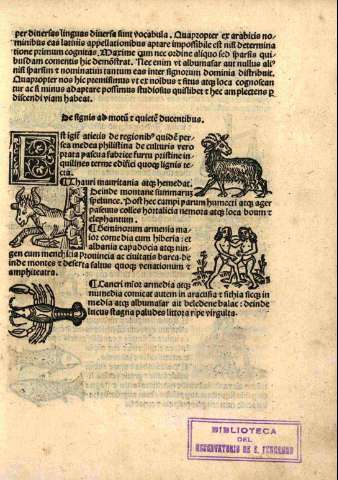 per diuersas linguas diuersa sunt vocabula. Quapropter ex arabicis no
minibus eas latinis appellationibus aptare impossibile est nisi determina
tione primum cognitas. Maxime cum nec ordine aliquo sed sparsis qui
busdam comentis hic demõstrat. Nec enim vt albumasar aut nullus ali⁹
nisi sparsim & nominatim tantum eas inter signorum dominia distribuit.
Quapropter nos hic premissimus vt ex nobis & situs atq̃ loca cognoscan
tur ac si minus adaptare possumus studiosus quilibet & hec amplectens p
discendi viam habeat.
De signis ad motũ & quietẽ ducentibus.
Est igit̃ arietis de regionib⁹ quidẽ per
sea medea philistina de culturis vero
prata pascua fabrice furru pristine in
quilines terme edifici quoq̃ lignis te
cta.
¶ Thauri mauritania atq̃ hemedat.
Deinde montane summarum
spelunce. Post hec campi parum humecti atq̃ ager
pascuus colles hortalicia nemora atq̃ loca boum &
elephantum.
¶ Geminorum armenia ma
ior comedia cum hiberia: et
albania capadocia atq̃ nin-
gen cum menchicia prouincia ac ciuitatis barca de
inde montes & deserta saltus quoq̃ venationum &
amphiteatra.
¶ Cancri mĩor armedia atq̃
numedia comicat autem in aracusia & sichia sicq̃ in
media atq̃ albumasar ait deledene balac: deinde
lucus stagna paludes littora ripe virgulta.
BIBLIOTECA
DEL
OBSERVATORIO DE S. FERNANDO